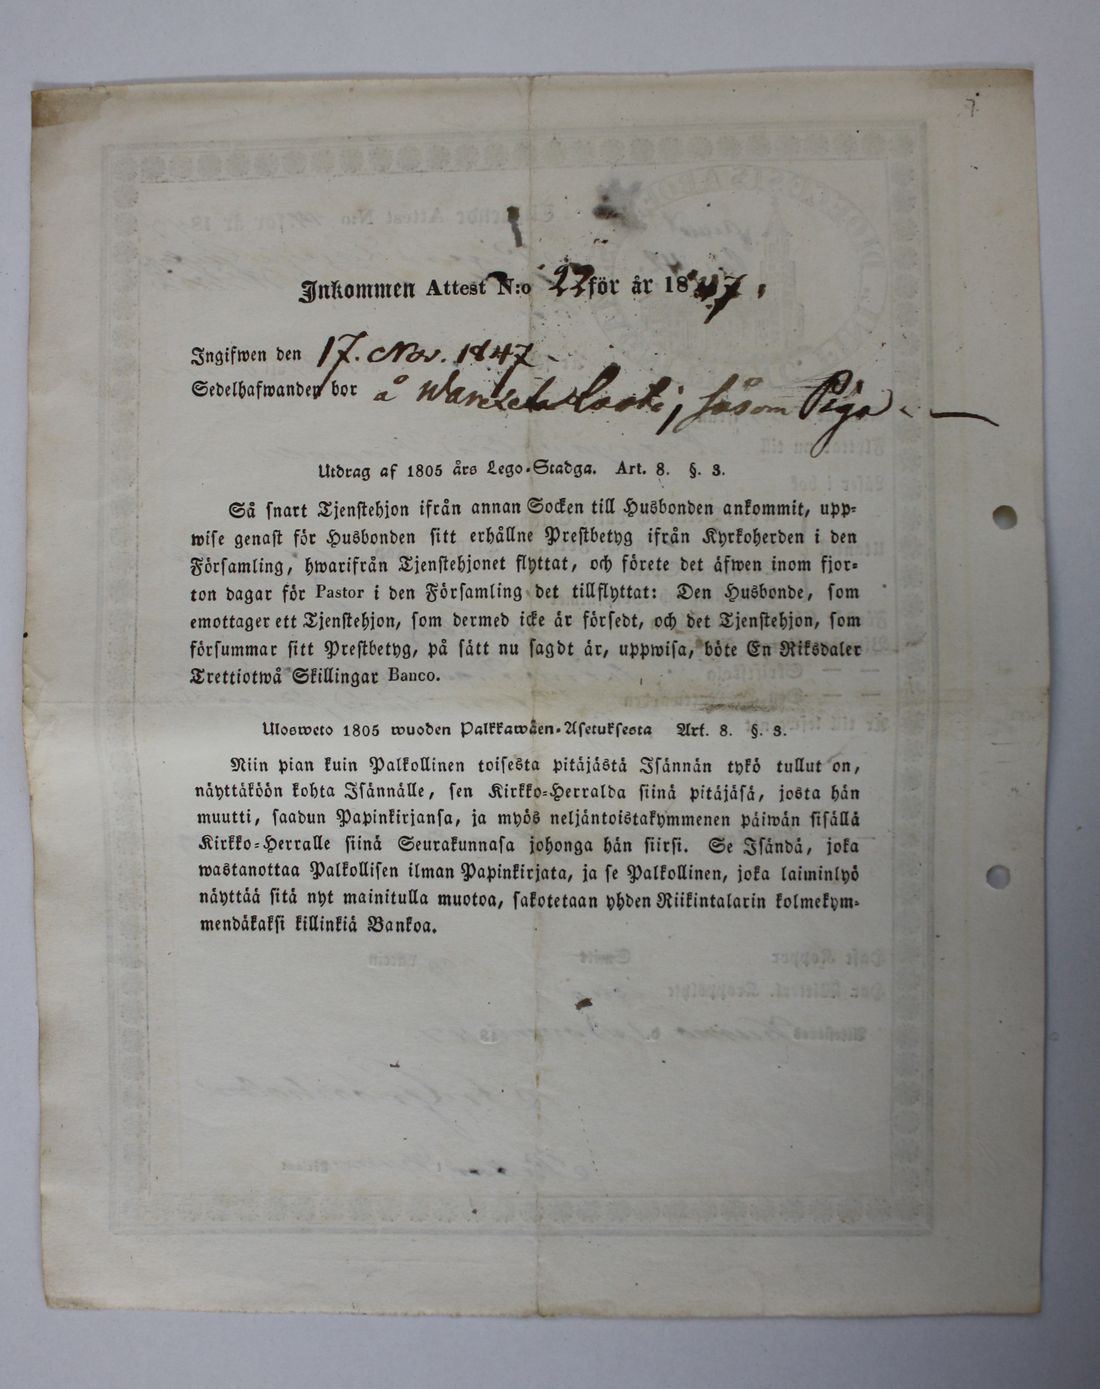 Inkommen Attest N:o 22 för år 1847.
Ingifwen den 17. Nov. 1847
Sedelhafwanden bor å såsom Piga.
Utdrag af 1805 års Lego-Stadga. Art. 8. §. 3.
Så snart Tjenstehjon ifrån annan Socken till Husbonden ankommit, upp-
wise genast för Husbonden sitt erhållne Prestbetyg ifrån Kyrkoherden i den
Församling, hwarifrån Tjenstehjonet flyttat, och förete det äfwen inom fjor-
ton dagar för Pastor i den Församling det tillflyttat: Den Husbonde, som
emottager ett Tjenstehjon, som dermed icke är försedt, och det Tjenstehjon, som
försummar sitt Prestbetyg, på sätt nu sagdt är, uppwisa, böte En Riksdaler
Trettiotwå Skillingar Banco.
Ulosweto 1805 wuoden Palkkawäen-Asetuksesta Art. 8. §. 3.
Niin pian kuin Palkollinen toisesta pitäjästä Isännän tykö tullut on,
näyttäköön kohta Isännälle, sen Kirkko-Herralda siinä pitäjäsä, josta hän
muutti, saadun Papinkirjansa, ja myös neljäntoistakymmenen päiwän sisällä
Kirkko-Herralle siinä Seurakunnasa johonga hän siirsi. Se Isändä, joka
wastanottaa Palkollisen ilman Papinkirjata, ja se Palkollinen, joka laiminlyö
näyttää sitä nyt mainitulla muotoa, sakotetaan yhden Riikintalarin kolmekym-
mendäkaksi killinkiä Bankoa.